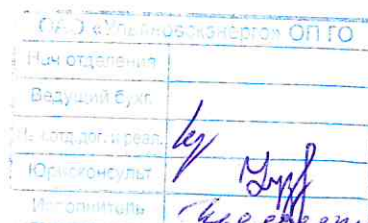 ОАО «Ульяновскэнерго» ОП ГО
Нач отделения
Ведущий бухг.
отд.дог. и реал.
Юрисконсульт
Исполнитель